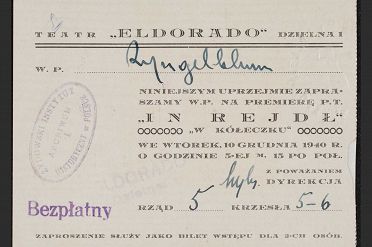 TEATR „ELDORADO” DZIELNA 1
W. P. Ryngelblum
NINIEJSZYM UPRZEJMIE ZAPRA-
SZAMY W.P. NA PREMIERĘ P.T.
„IN REJDŁ”
„W KÓŁECZKU”
WE WTOREK, 10 GRUDNIA 1940 R.
O GODZINIE 5-EJ M. 15 PO POŁ.
Z POWAŻANIEM
DYREKCJA
RZĄD 5 KRZESŁA 5-6
Bezpłatny
ZAPROSZENIE SŁUŻY JAKO BILET WSTĘPU DLA 2-CH OSÓB.
ŻYDOWSKI INSTYTUT
HISTORYCZNY w POLSCE
ARCHIWUM